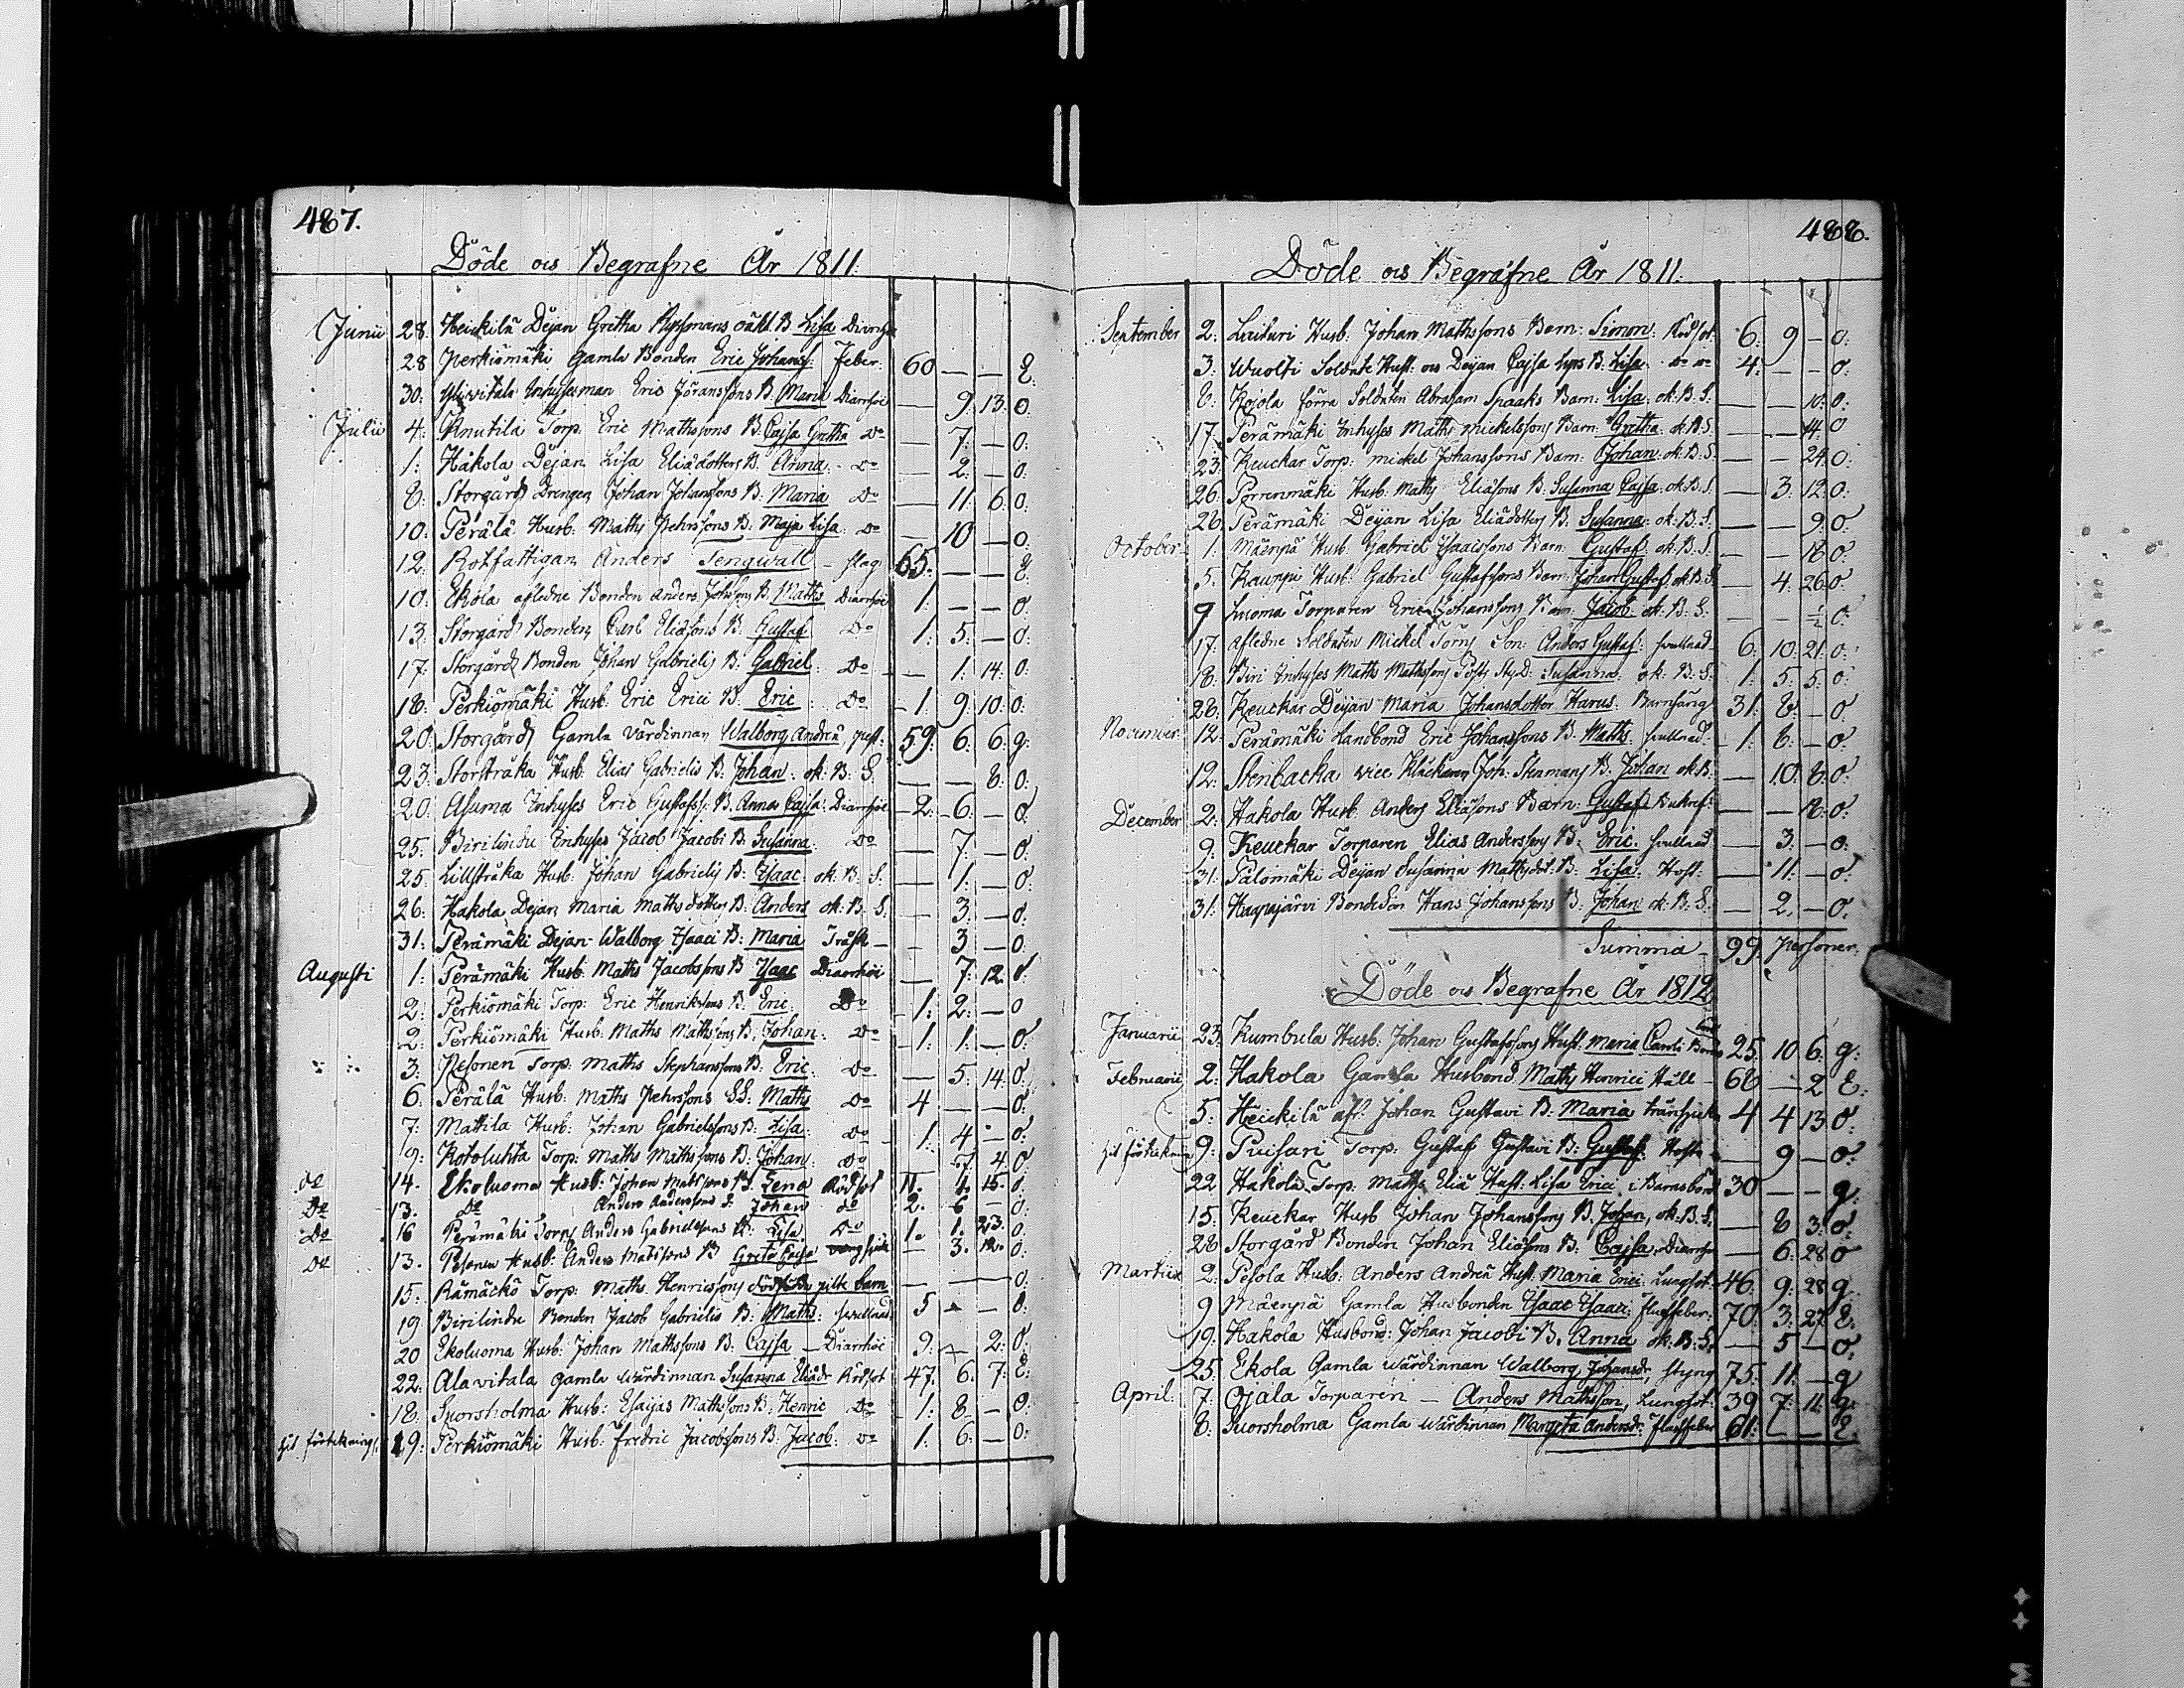 487.
Döde ocs Begrafne År 1811.
Junii 28. Heickilä Dejan Gretha oäkt B. Lisa Diarrhoe
28 Perkiömäki Gamla Bonden Eric Johans: Feber: 60 — — E.
30. Yliwitala Inhysesman Eric Jöranssons B. Maria Diarrhoe — 9. 13. O.
Julii 4. Knutila Torp. Eric Mathssons B. Cajsa Gretha Do — 7. — O.
1. Hakola Dejan Lisa Eliædotters B. Anna. Do — 2. — O.
8. Storgårds Drengen Johan Johanssons B. Maria Do — 11. 6. O.
10. Perälä Husb. Maths Pehrssons B. Maja Lisa. Do — 10 — O.
12. Rotfattigan Anders Tengwall — slag 65. — — E.
10. Ekola afledne Bonden Anders Johssons B. Maths Diarrhoe 1. — — O.
13. Storgård Bonden Carl Eliæsons B. Gustaf Do 1. 5. — O.
17. Storgårds Bonden Johan Gabrielis B. Gabriel. Do — 1. 14. O.
18. Perkiömäki Husb. Eric Erici B. Eric. Do 1. 9. 10. O.
20. Storgårds Gamla Värdinnan Walborg Andreæ 59. 6. 6. g.
23. Storstråka Husb. Elias Gabrielis B. Johan. ok. B. S. — — 8. O.
20. Asuma Inhyses Eric Gustafss. B. Anna Cajsa. Diarrhoe 2. 6. — O.
25. Birilindu Inhyses Jacob Jacobi B. Susanna. Do — 7. — O.
25. Lillstråka Husb. Johan Gabrielis B. Isaac. ok. B. S. — 1. — O.
26. Hakola Dejan Maria Mathsdotters B. Anders ok. B. S. — 3. — O.
31. Perämäki Dejan Walborg Isaaci B. Maria Tråsk — — 3 — O.
Augusti 1. Perämäki Husb. Maths Jacobssons B. Isaac Diarrhoe — 7. 12. O.
2. Perkiömäki Torp. Eric Henrikssons B. Eric. Do 1. 2. — O
2. Perkiömäki Husb. Maths Mathssons B. Johan. Do 1. 1. — O.
3. Pesonen Torp. Maths Stephanssons B. Eric. Do — 5. 14. O.
6. Perälä Husb. Maths Pehrssons Maths Do 4 — — O.
7. Mattila Husb. Johan Gabrielssons B. Lisa. Do 1. 4. — O.
9. Kotoluhta Torp. Maths Mathssons B. Johan. Do — 7. 4. O
Do 14. Ekoluoma Husb. Johan Matssons B. Lena Rödsot 11. 1. 15. O.
Do 13. Do Anders Anderssons S. Johan Do 2. 6 — O.
Do 16 Perämäki Torp. Anders Gabrielssons B. Lisa. Do 1. 1. 23. O.
Do 13. Pesonen Husb. Anders Matssons B Greta Cajsa — 3. 12. O.
15. Rämäckö Torp. Maths Henricssons dödfödda gilla barn — — — O.
19. Birilindu Bonden Jacob Gabrielis B. Maths. swullnad 5 — — O.
20 Ekoluoma Husb. Johan Mathssons B. Cajsa — Diarrhoe 9. — 2. O.
22. Alavitala gamla wärdinnan Susanna Eliædr Rödsot 47. 6. 7. E.
18. Suorsholma Husb. Esaijas Mathssons B. Henric Do 1. 8. — O.
til förtekning 19. Perkiömäki Husb. Fredric Jacobssons B. Jacob. Do 1. 6. — O.
488.
Döde ocs Begrafne År 1811.
September 2. Luituri Husb. Johan Mathssons Barn. Simon. Rödsot. 6. 9 — O.
3. Wuolti Soldate Hust. ocs Deijan Cajsa B. Lisa. Do Do 4. — — O.
8. Kojola förra Soldaten Abraham Spaaks Barn. Lisa. ok. B. S. — — 10. O.
17. Perämäki Inhyses Maths Mickelssons Barn. Gretha. ok. B. S. — — 14. O
23. Keuckar Torp. Mickel Johanssons Barn. Johan. ok. B. S. — — 24. O.
26. Porrenmäki Husb. Maths Eliæsons B. Susanna Cajsa. ok. B. S. — 3. 12. O.
26. Perämäki Deijan Lisa Eliædotters B. Susanna. ok. B. S. — — 9. O.
October 1. Mäenpä Husb. Gabriel Isaacssons Barn. Gustaf. ok. B. S. — — 18. O.
5. Kauppi Husb. Gabriel Gustafssons Barn. Johan Gustaf ok. B. S. — 4. 26. O
9 Luoma Torparen Eric Johanssons Barn. Jacob. ok. B. S. — — ½ O.
17. Afledne Soldaten Mickel Törns Son. Anders Gustaf. swullnad 6. 10. 21. O.
18. Biri Inhyses Maths Mathssons Susanna. ok. B. S. 1. 5. 5. O.
28. Keuckar Deijan Maria Johansdotter Harus. Barnsäng 31. 8. — O
November 12. Perämäki Landbond Eric Johanssons B. Maths. swullnad 1. 6. — O.
12. Stenbacka vice Klåckaren Joh. Stenmans B. Johan ok. B. — 10. 8. O.
December 2. Hakola Husb. Anders Eliæsons Barn. Gustaf. Bukref. — — 18. O.
9. Keuckar Torparen Elias Anderssons B. Eric. swullnad — 3. — O.
31. Palomäki Deijan Susanna Mathsdot. B. Lisa. Host. — 11. — O.
31. Haapajärvi BondeSon Hans Johanssons B. Johan ok. B. S. — 2. — O.
Summa — 99. Personer.
Döde ocs Begrafne År 1812
Januarii 23. Kumbula Husb. Johan Gustafssons Hust. Maria Caroli 25. 10 6. g.
Februarii 2. Hakola Gamla Husbond Maths Henrici Håll — 68 — 2 E.
5. Heickilä afl. Johan Gustavi B. Maria 4 4 13 O.
til förtekning 9. Puisari Torp. Gustaf Gustavi B. Gustaf. Hosta — — 9 — O.
22 Hakola Torp. Maths Eliæ Hust. Lisa Erici i Barnsbörd 30 — — g.
15. Keuckar Husb Johan Johanssons B. Johan, ok. B. S. — 8 3. O.
28 Storgård Bonden Johan Eliæsons B. Cajsa. Diarrhoe — 6. 28 O
Martius 2. Pesola Husb. Anders Andreæ Hust. Maria Erici Lungsot. 46. 9. 28 g.
9. Mäenpiä Gamla Husbonden Isaac Isaaci. flussfeber. 70. 3. 27. E.
19. Hakola Husbond. Johan Jacobi B. Anna ok. B. S. — 5 — O.
25. Ekola Gamla Wärdinnan Walborg Johansdr, styng 75. 11. — g
April. 7. Ojala Torparen — Anders Mathsson, Lungsot. 39 7. 11. g.
8. Suorsholma Gamla Wärdinnan Margeta Andersdr. flussfeber 61. — — E.